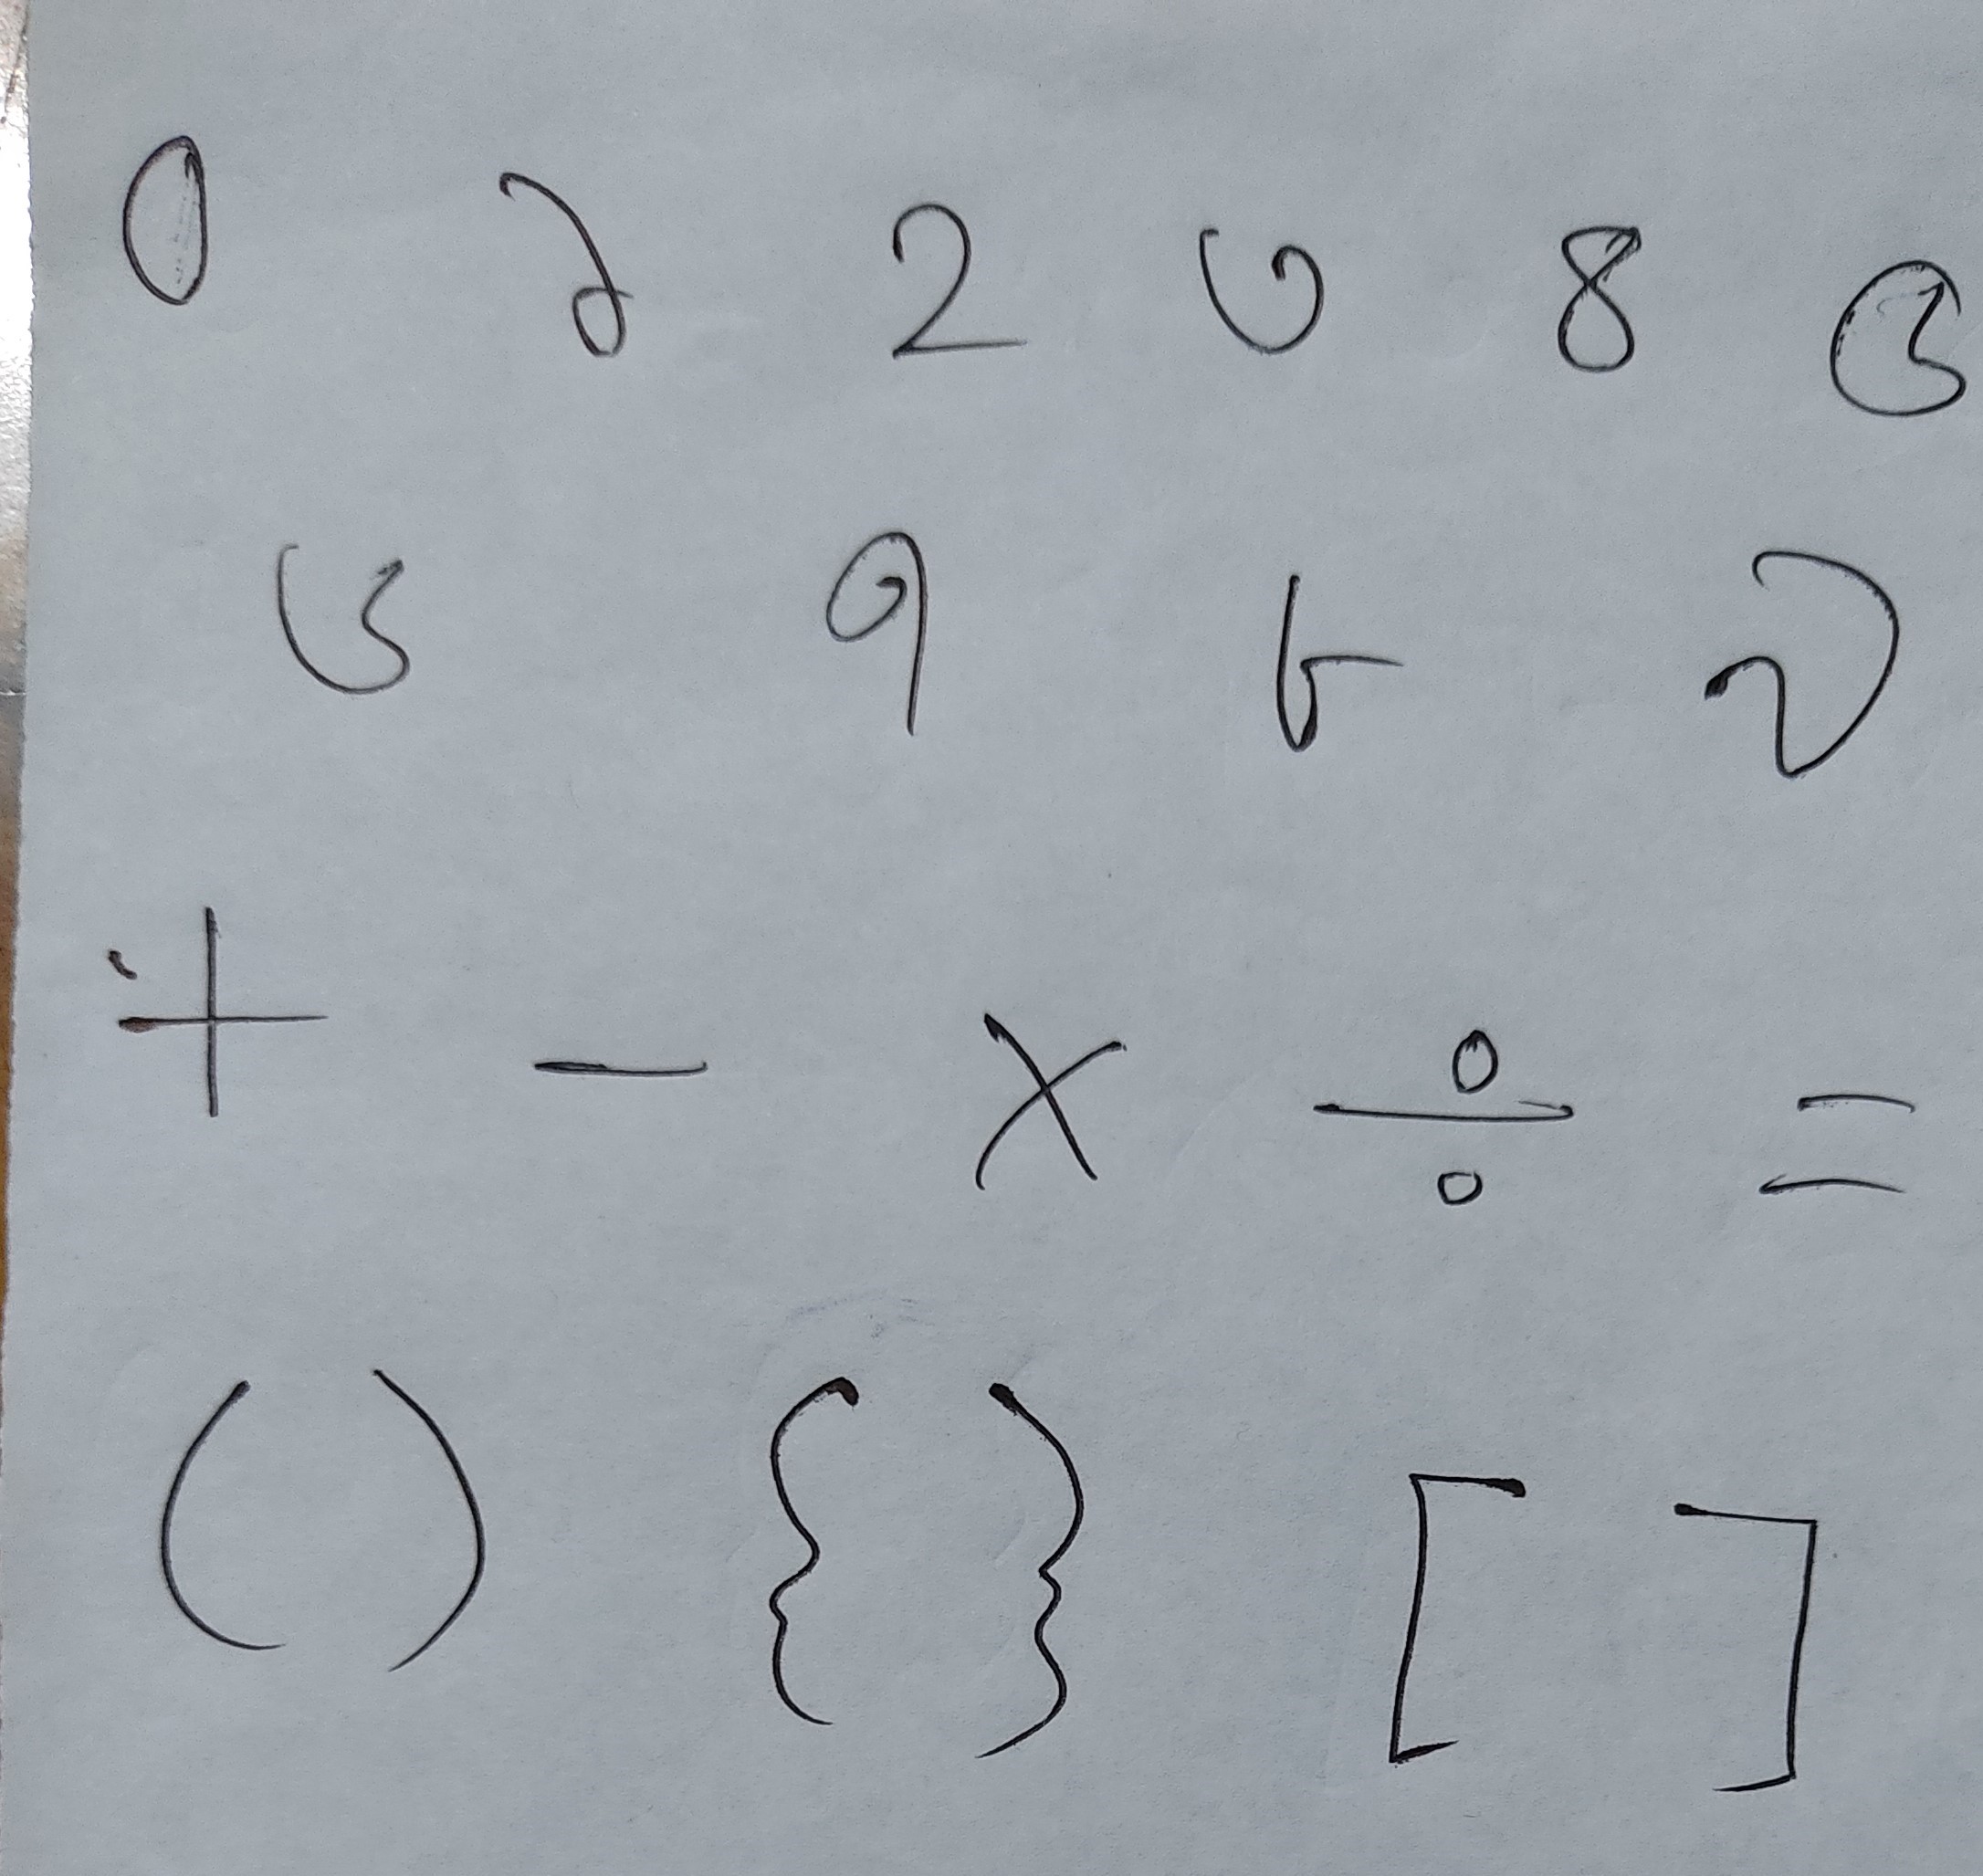 ০ ১ ২ ৩ ৪ ৫
৬ ৭ ৮ ৯
+ − × ÷ =
( ) { } [ ]